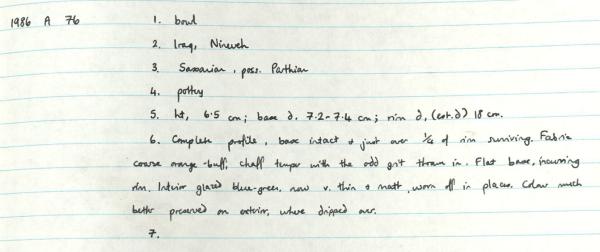 1986 A 76 1. bowl
2. Iraq, Nineveh
3. Sassanian, poss. Parthian
4. pottery
5. ht, 6.5 cm; base d. 7.2-7.4 cm; rim d, (est.d) 18 cm.
6. Complete profile, base intact & just over 1/4 of rim surviving. Fabric
coarse orange-buff, chaff temper with the odd grit thrown in. Flat base, incurving
rim. Interior glazed blue-green, now v. thin & matt, worn off in places. Colour much
better preserved on exterior, where dripped over.
7.